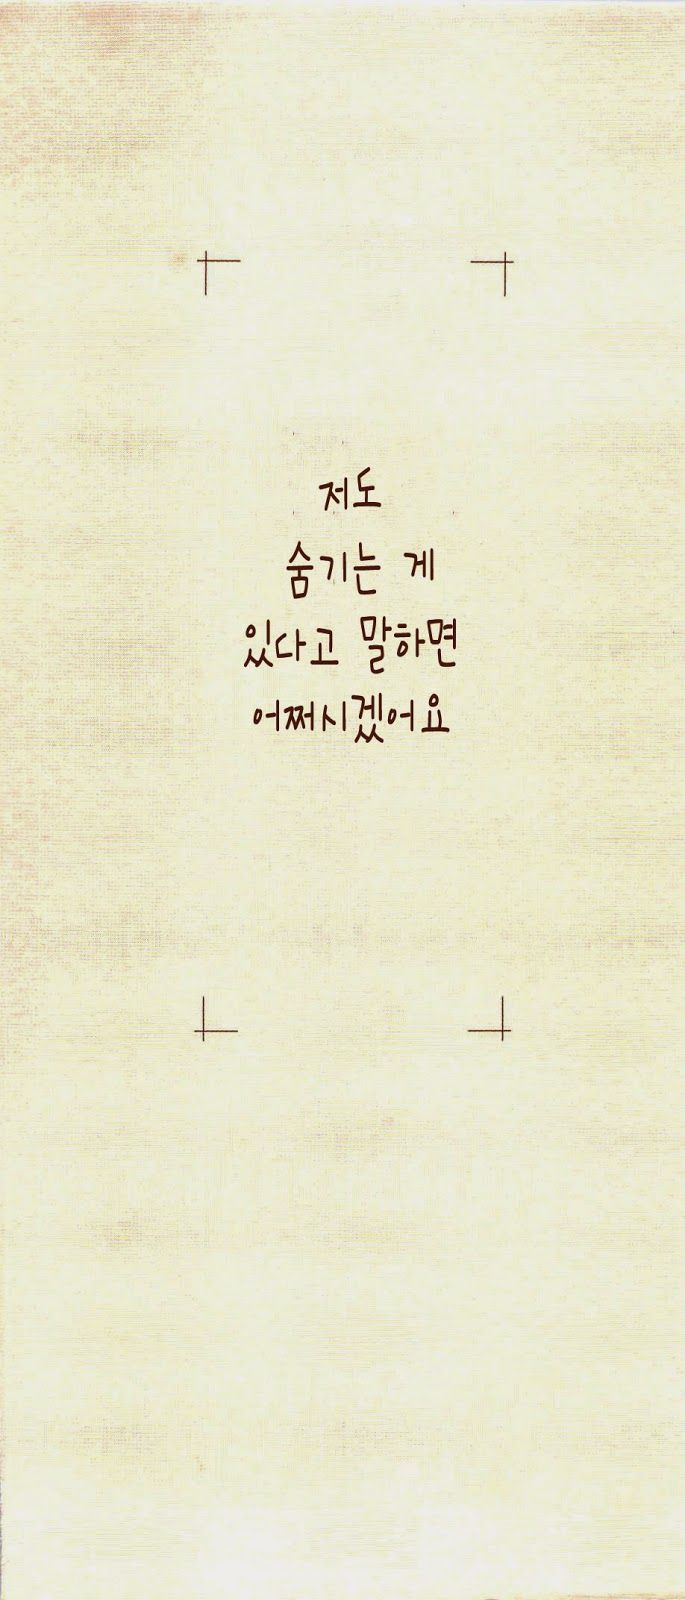 저도
숨기는 게
있다고 말하면
어쩌시겠어요